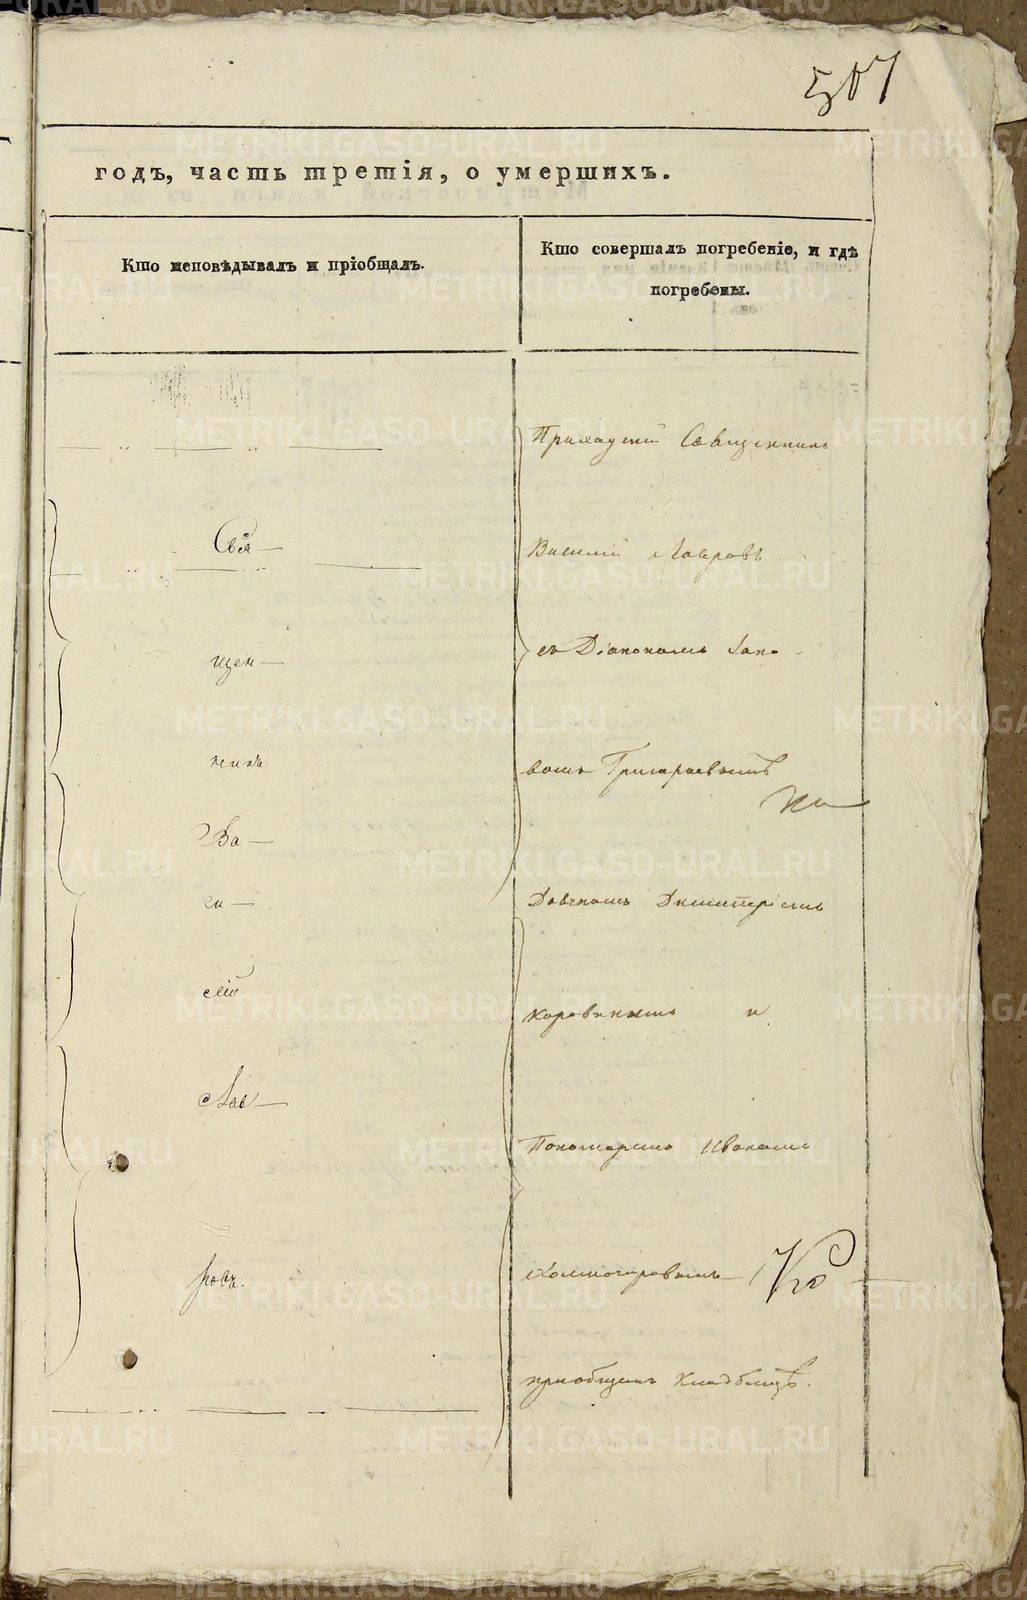 507
годъ, часть третія, о умершихъ.
Кто исповѣдывалъ и пріобщалъ.
Кто совершалъ погребеніе, и гдѣ погребены.
Свя-
щен-
никъ
Ва-
си-
лій
Лав-
ровъ.
Приходскій Священникъ
Василій Лавровъ
съ Діакономъ Іако-
вомъ
Дьячкомъ Димитріемъ
и
Пономаремъ Иваномъ
Холмогоровымъ
на
приобщемъ кладбищѣ.
METRIKI.GASO-URAL.RU